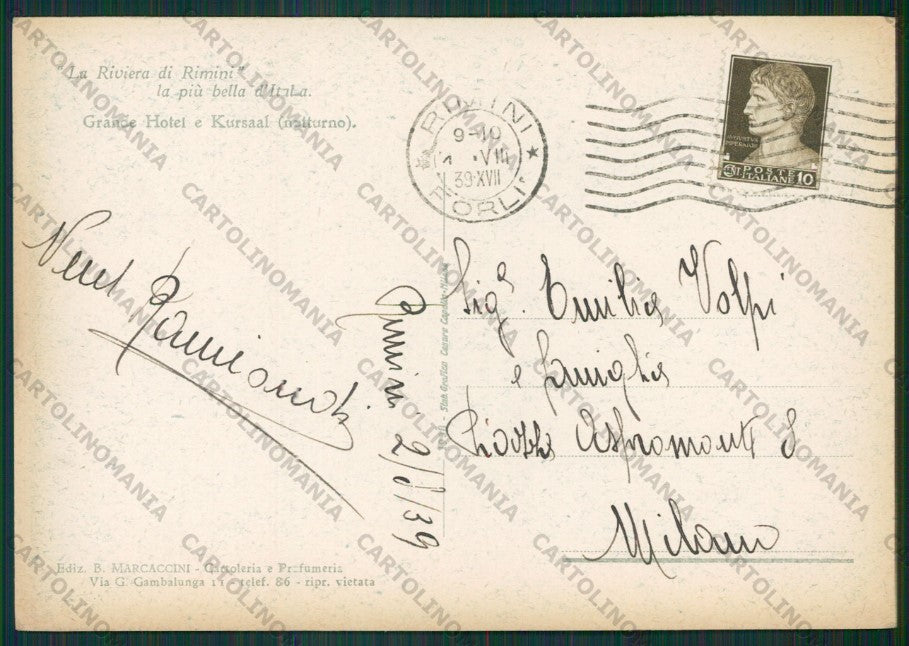 "La Riviera di Rimini"
la più bella d'Italia.
Grande Hotel e Kursaal (notturno).
RIMINI
9-10
VIII
39·XVII
FORLI
AVGVSTVS
IMPERATOR
POSTE
ITALIANE
10
Rimini 2/8/39
Sigª. Emilia Volpi
e famiglia
Piazza Aspromonte 8
Milano
Ediz. B. MARCACCINI - Cartoleria e Profumeria
Via G. Gambalunga 11 - telef. 86 - ripr. vietata
CARTOLINOMANIA